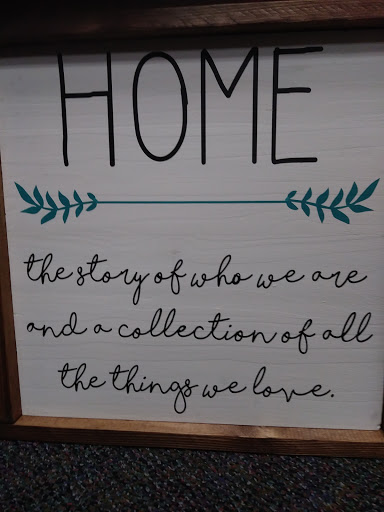 HOME
the story of who we are
and a collection of all
the things we love.